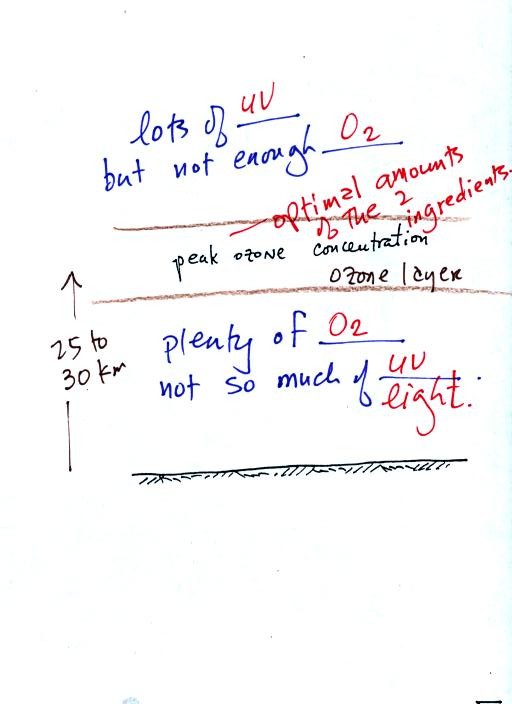 lots of UV
but not enough O2
optimal amounts
of the 2
ingredients.
peak ozone concentration
ozone layer
25 to
30 km
plenty of O2
not so much of UV
light.